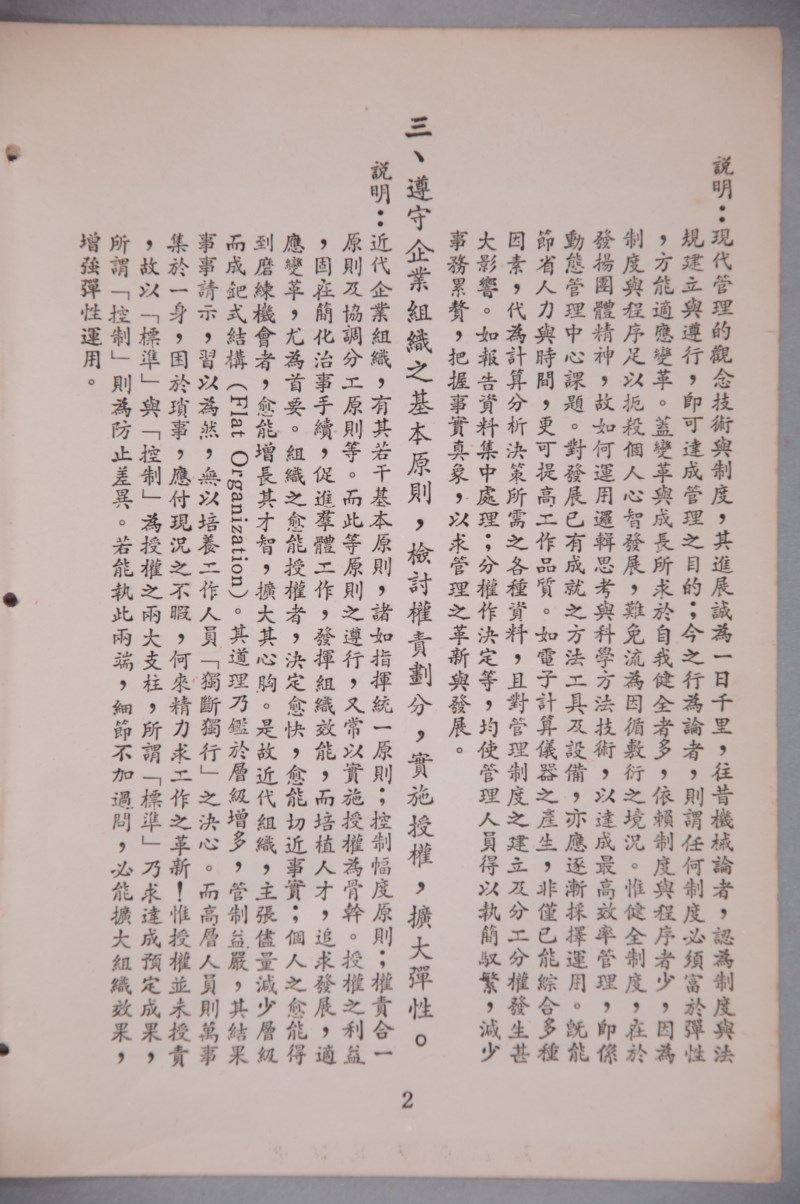 說明：現代管理的觀念技術與制度，其進展誠為一日千里，往昔機械論者，認為制度與法
規建立與遵行，即可達成管理之目的；今之行為論者，則謂任何制度必須富於彈性
，方能適應變革。蓋變革與成長所求於自我健全者多，依賴制度與程序者少，因為
制度與程序足以扼殺個人心智發展，難免流為因循敷衍之境況。惟健全制度，在於
發揚團體精神，故如何運用邏輯思考與科學方法技術，以達成最高效率管理，即係
動態管理中心課題。對發展已有成就之方法工具及設備，亦應逐漸採擇運用。既能
節省人力與時間，更可提高工作品質。如電子計算儀器之產生，非僅已能綜合多種
因素，代為計算分析決策所需之各種資料，且對管理制度之建立及分工分權發生甚
大影響。如報告資料集中處理；分權作決定等，均使管理人員得以執簡馭繁，減少
事務累贅，把握事實真象，以求管理之革新與發展。
三、遵守企業組織之基本原則，檢討權責劃分，實施授權，擴大彈性。
說明：近代企業組織，有其若干基本原則，諸如指揮統一原則；控制幅度原則；權責合一
原則及協調分工原則等。而此等原則之遵行，又常以實施授權為骨幹。授權之利益
，固在簡化治事手續，促進羣體工作，發揮組織效能，而培植人才，追求發展，適
應變革，尤為首要。組織之愈能授權者，決定愈快，愈能切近事實；個人之愈能得
到磨練機會者，愈能增長其才智，擴大其心胸。是故近代組織，主張儘量減少層級
而成鈀式結構（Flat Organization）。其道理乃鑑於層級增多，管制益嚴，其結果
事事請示，習以為然，無以培養工作人員「獨斷獨行」之決心。而高層人員則萬事
集於一身，困於瑣事，應付現況之不暇，何來精力求工作之革新！惟授權並未授責
，故以「標準」與「控制」為授權之兩大支柱，所謂「標準」乃求達成預定成果，
所謂「控制」則為防止差異。若能執此兩端，細節不加過問，必能擴大組織效果，
增強彈性運用。
2